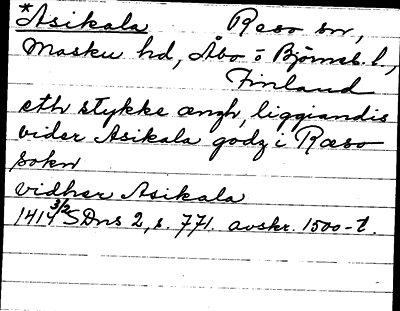 *Asikala Reso sn,
Masku hd, Åbo o Björneb. l,
Finland
eth stykke ængh, liggiandis
vider Asikala godz i Ræso
sokn
vidher Asikala
1414 3/2 SDns 2, s. 771. avskr. 1500-t.